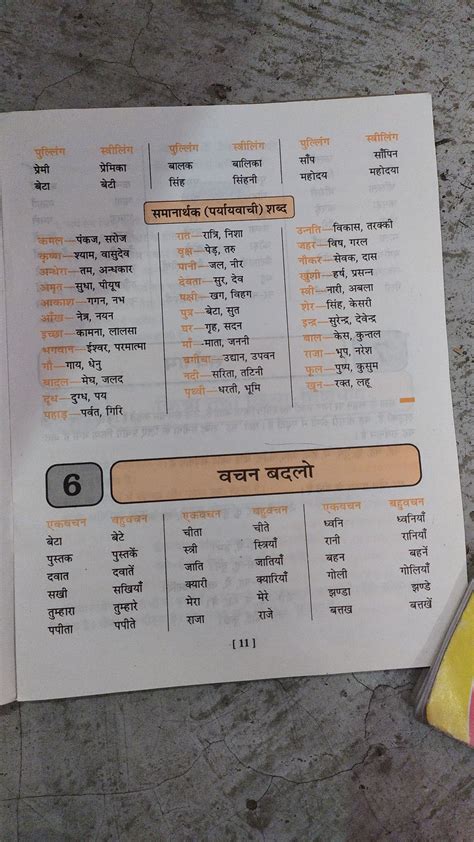 पुल्लिंग स्त्रीलिंग पुल्लिंग स्त्रीलिंग पुल्लिंग स्त्रीलिंग
प्रेमी प्रेमिका बालक बालिका साँप साँपिन
बेटा बेटी सिंह सिंहनी महोदय महोदया
समानार्थक (पर्यायवाची) शब्द
कमल—पंकज, सरोज
कृष्ण—श्याम, वासुदेव
अन्धेरा—तम, अन्धकार
अमृत—सुधा, पीयूष
आकाश—गगन, नभ
आँख—नेत्र, नयन
इच्छा—कामना, लालसा
भगवान—ईश्वर, परमात्मा
गौ—गाय, धेनु
बादल—मेघ, जलद
दूध—दुग्ध, पय
पहाड़—पर्वत, गिरि
रात—रात्रि, निशा
वृक्ष—पेड़, तरु
पानी—जल, नीर
देवता—सुर, देव
पक्षी—खग, विहग
पुत्र—बेटा, सुत
घर—गृह, सदन
माँ—माता, जननी
बगीचा—उद्यान, उपवन
नदी—सरिता, तटिनी
पृथ्वी—धरती, भूमि
उन्नति—विकास, तरक्की
जहर—विष, गरल
नौकर—सेवक, दास
खुशी—हर्ष, प्रसन्न
स्त्री—नारी, अबला
शेर—सिंह, केसरी
इन्द्र—सुरेन्द्र, देवेन्द्र
बाल—केस, कुन्तल
राजा—भूप, नरेश
फूल—पुष्प, कुसुम
खून—रक्त, लहू
6 वचन बदलो
एकवचन बहुवचन एकवचन बहुवचन एकवचन बहुवचन
बेटा बेटे चीता चीते ध्वनि ध्वनियाँ
पुस्तक पुस्तकें स्त्री स्त्रियाँ रानी रानियाँ
दवात दवातें जाति जातियाँ बहन बहनें
सखी सखियाँ क्यारी क्यारियाँ गोली गोलियाँ
तुम्हारा तुम्हारे मेरा मेरे झण्डा झण्डे
पपीता पपीते राजा राजे बत्तख बत्तखें
[ 11 ]